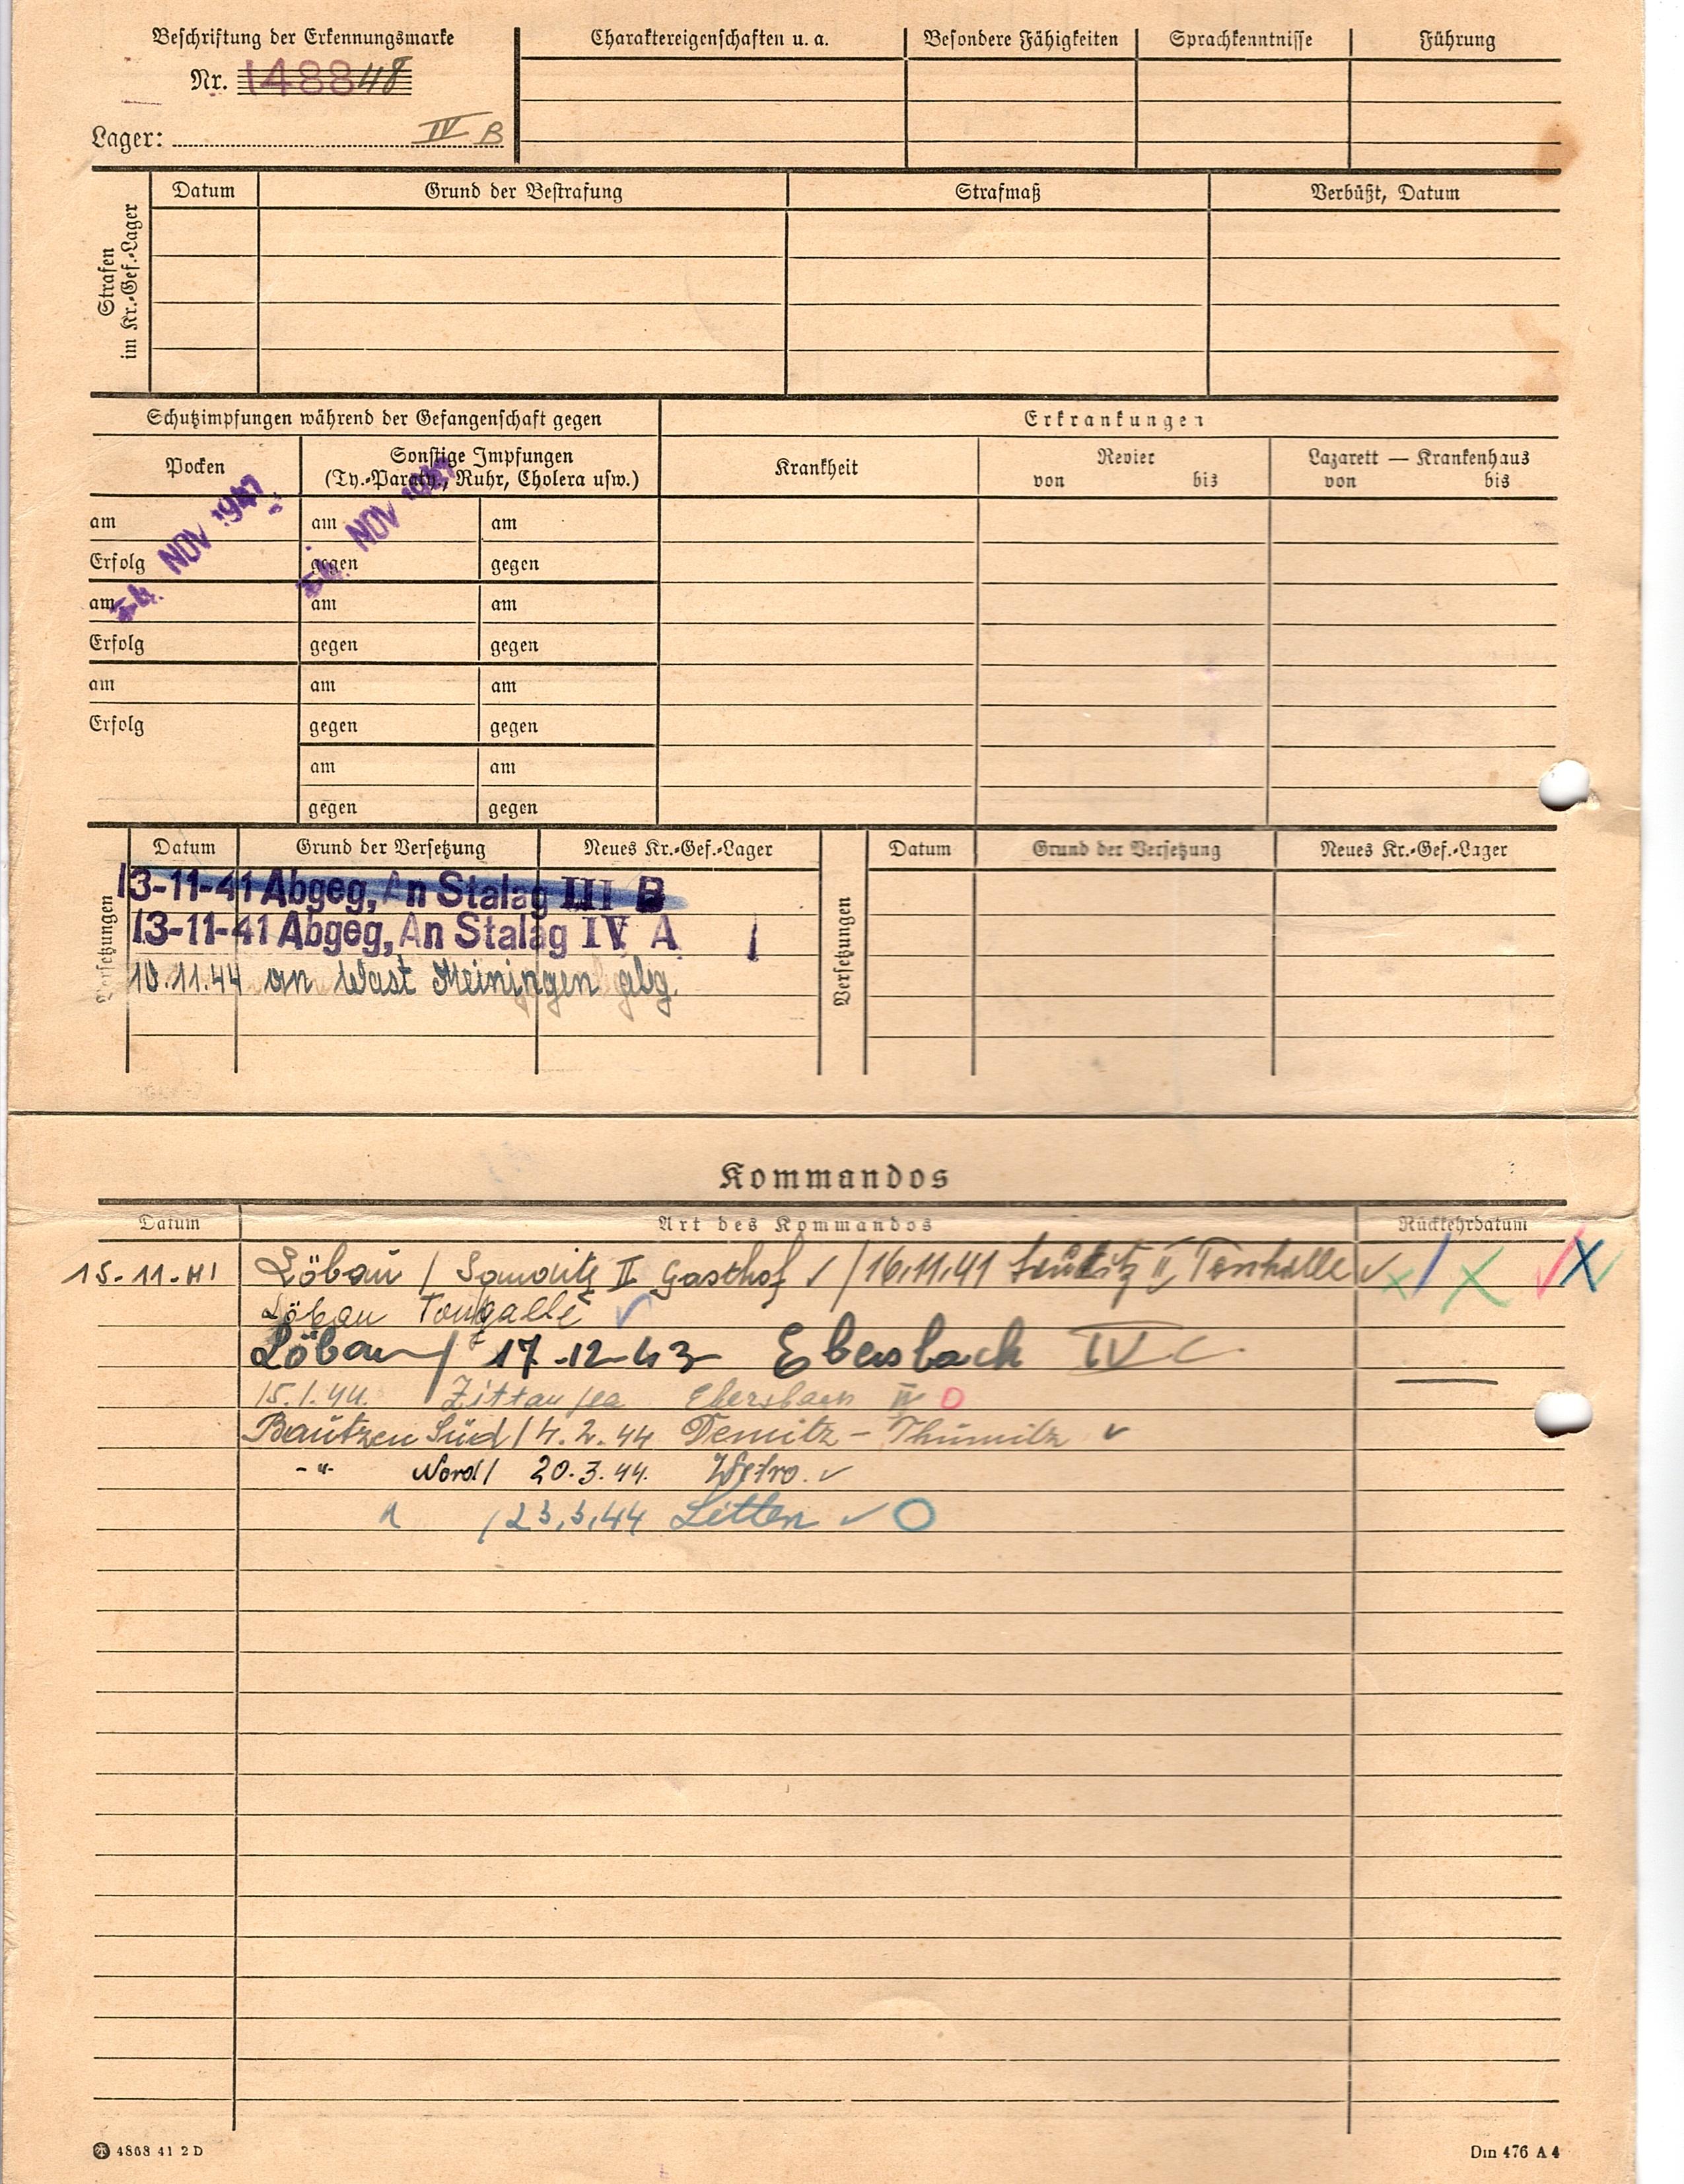 Beschriftung der Erkennungsmarke
Charaktereigenschaften u. a.
Besondere Fähigkeiten
Sprachkenntnisse
Führung
Nr. 148848
Lager: IV B
Strafen im Kr.-Gef.-Lager
Datum
Grund der Bestrafung
Strafmaß
Verbüßt, Datum
Schutzimpfungen während der Gefangenschaft gegen
Erkrankungen
Pocken
Sonstige Impfungen
(Ty.-Paraty., Ruhr, Cholera usw.)
Krankheit
Revier
von bis
Lazarett — Krankenhaus
von bis
NOV
NOV
am am am
Erfolg gegen gegen
am am am
Erfolg gegen gegen
am am am
Erfolg gegen gegen
am am
gegen gegen
Versetzungen
Datum
Grund der Versetzung
Neues Kr.-Gef.-Lager
Versetzungen
Datum
Grund der Versetzung
Neues Kr.-Gef.-Lager
13-11-41 Abgeg, An Stalag III B
13-11-41 Abgeg, An Stalag IV A
10.11.44 an Wast Meiningen
Kommandos
Datum
Art des Kommandos
Rückkehrdatum
15-11-41 Löbau / II Gasthof ✓ / 16.11.41 II Tonhalle ✓
Löbau ✓
Löbau / 17-12-43 Ebersbach IV
15.1.44. Zittau Ebersbach IV
Bautzen Süd / 4.2.44 Demitz-Thumitz ✓
-"- Nord / 20.3.44. Wetro. ✓
" / 23.3.44 Litten ✓
4808 41 2 D
Din 476 A 4